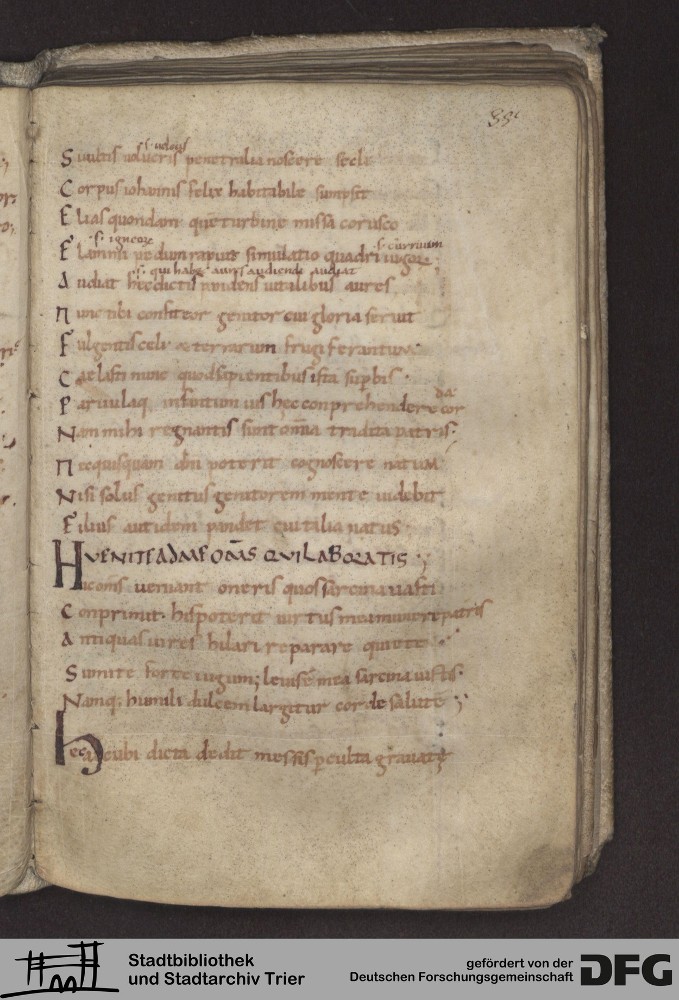 88
s. uobis
Si uultis uolucris penetralia noscere secli
Corpus iohannis felix habitabile sumpsit
Elias quondam que turbine missa corusco
s. igneorum s. curruum
Flammi pedum rapuit simulatio quadri iugorum
s. qui habet aures audiendi audiat
Audiat hęc dictis pandens utilibus aures
Nunc tibi confiteor genitor cui gloria seruit
Fulgentis celi & terrarum frugiferantum
Caelasti nunc quod sapientibus ista superbis
da
Paruulaq. infantum uis hec conprehendere cor
Nam mihi regnantis sunt omnia tradita patris
Nec quisquam dni poterit cognoscere natum
Nisi solus genitus genitorem mente uidebit
Filius aut idem pandet cui talia natus
VENITE AD ME OMS QUI LABORATIS
Huc oms ueniant oneris quos sarcina uasti
Conprimit. his poterit uirtus mea munere patris
Antiquas uires hilari reparare quiete
Sumite forte iugum; leuis ē mea sarcina iustis
Namq; humili dulcem largitur corde salutē
hęc ubi dicta dedit messis p culta grauatę
Stadtbibliothek
und Stadtarchiv Trier
gefördert von der
Deutschen Forschungsgemeinschaft
DFG